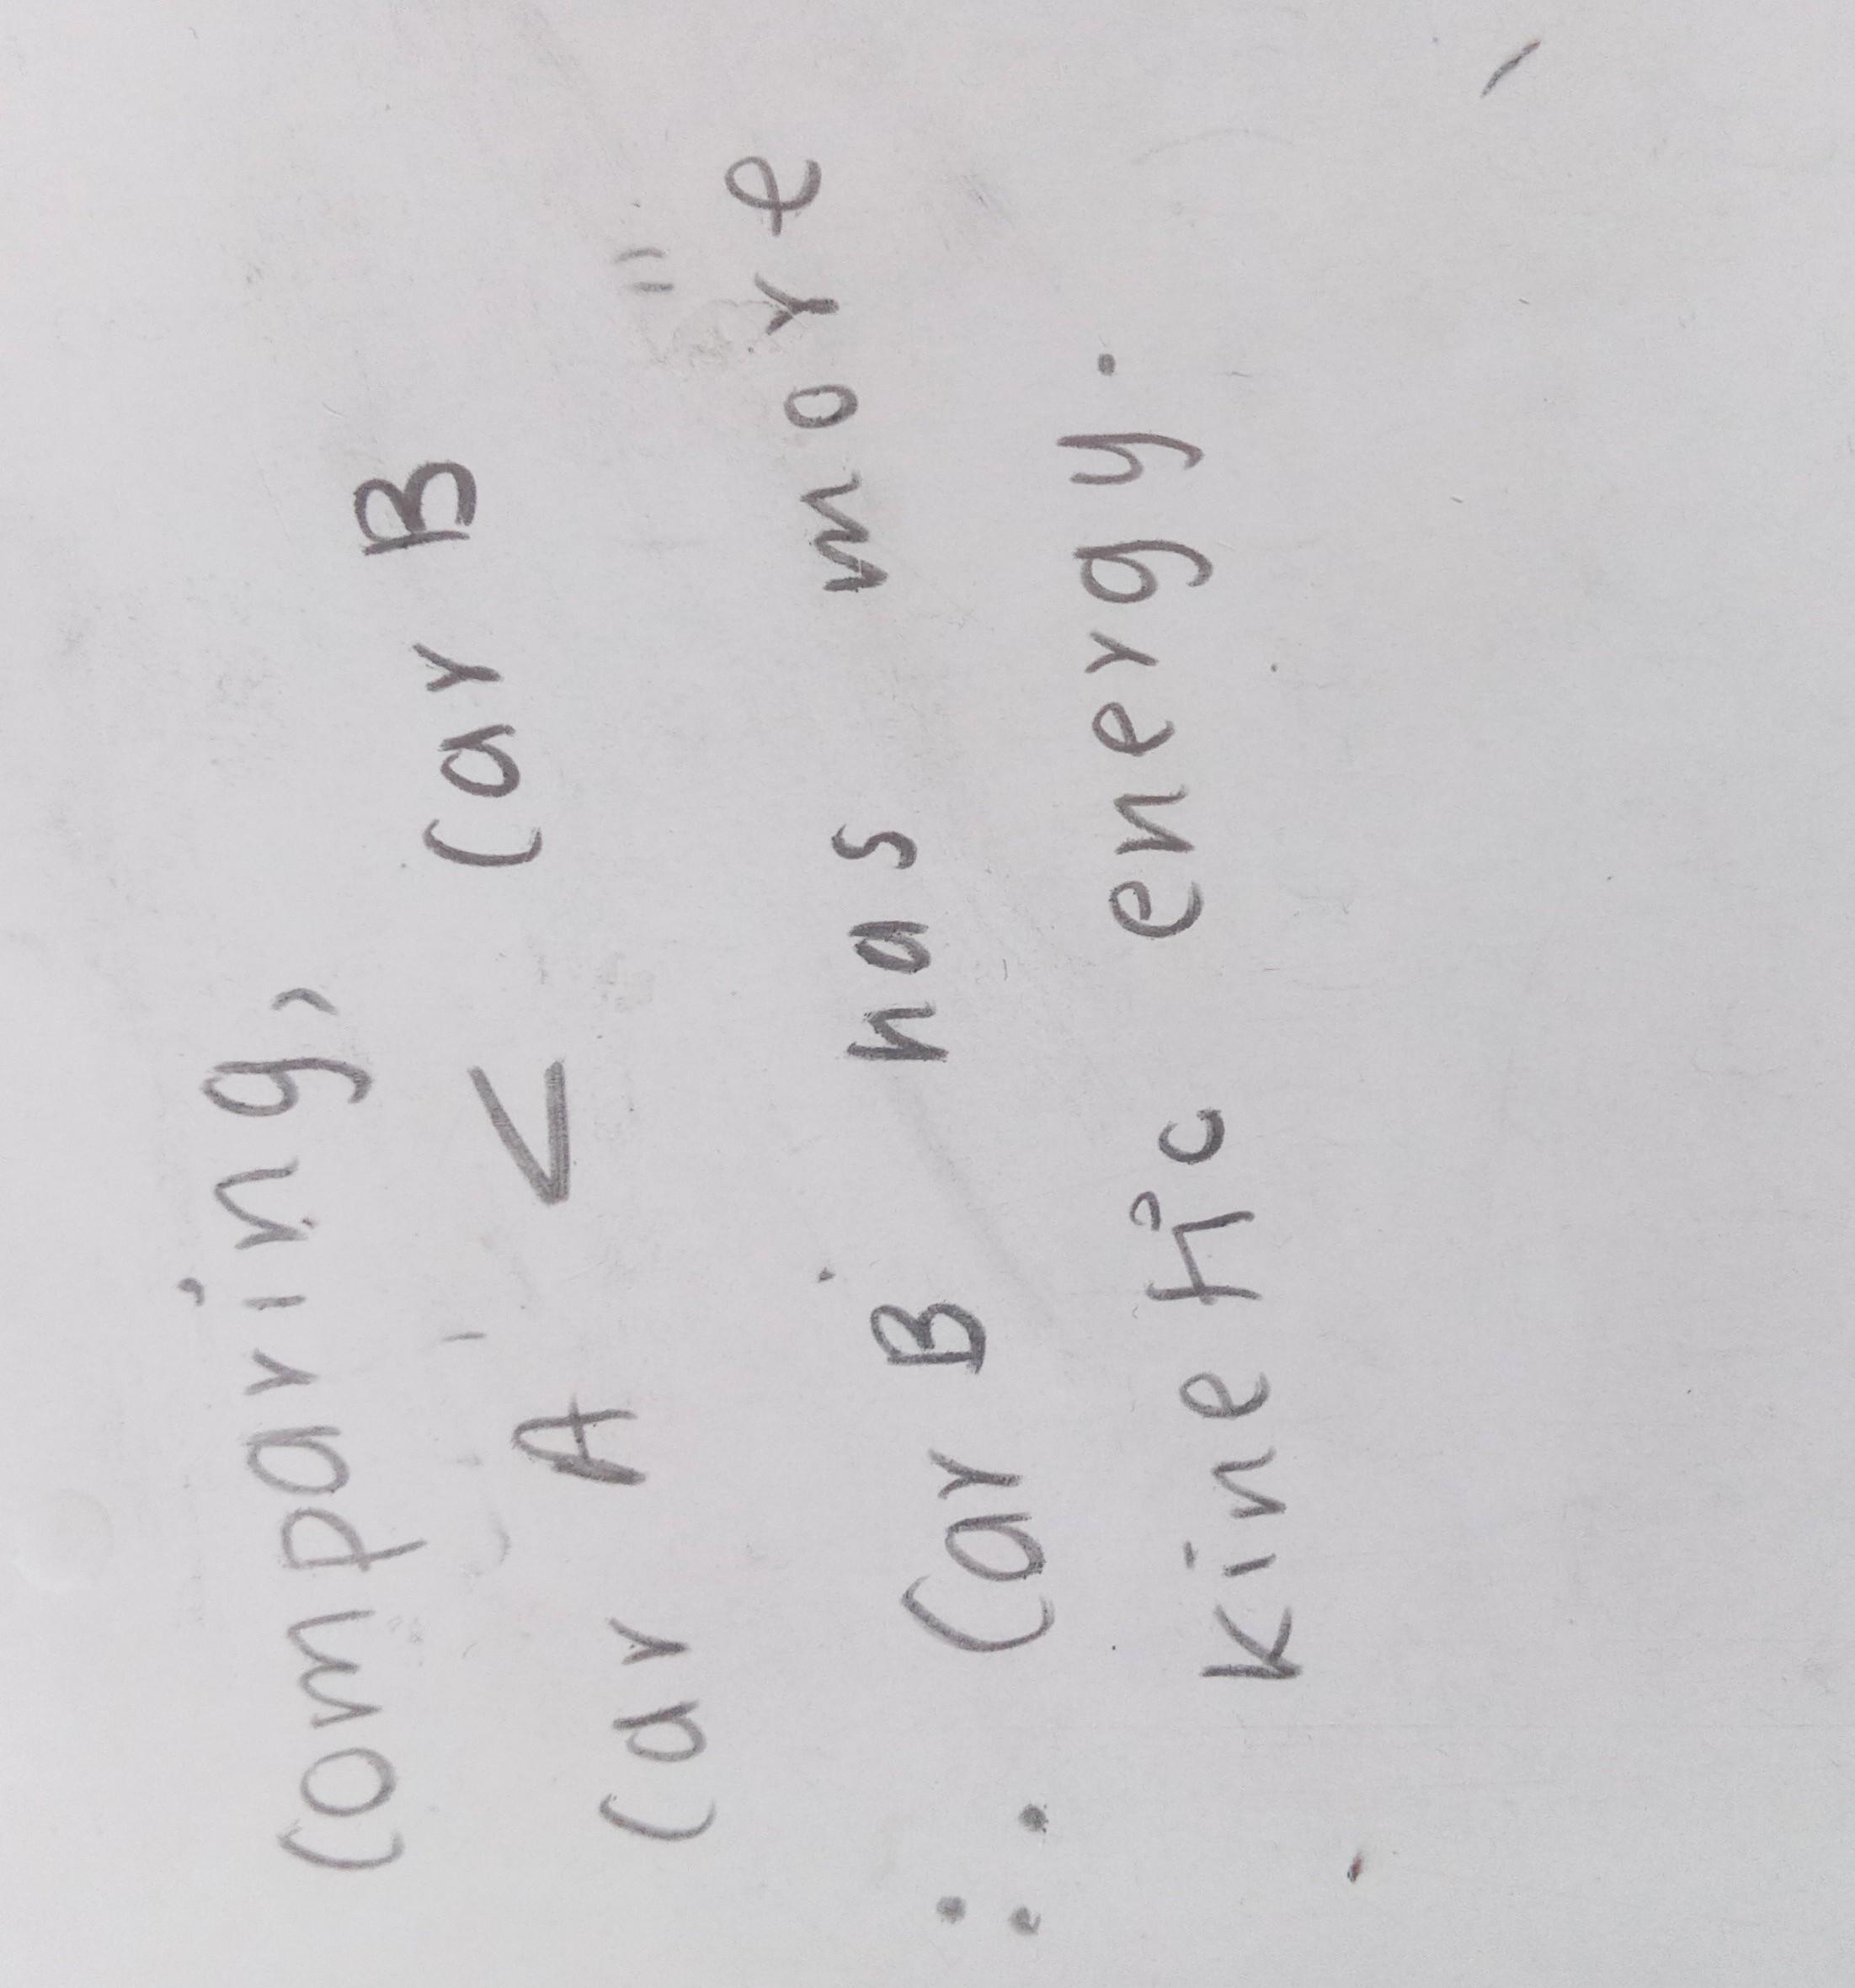 Comparing,
Car A < Car B
∴ Car B has more
kinetic energy.